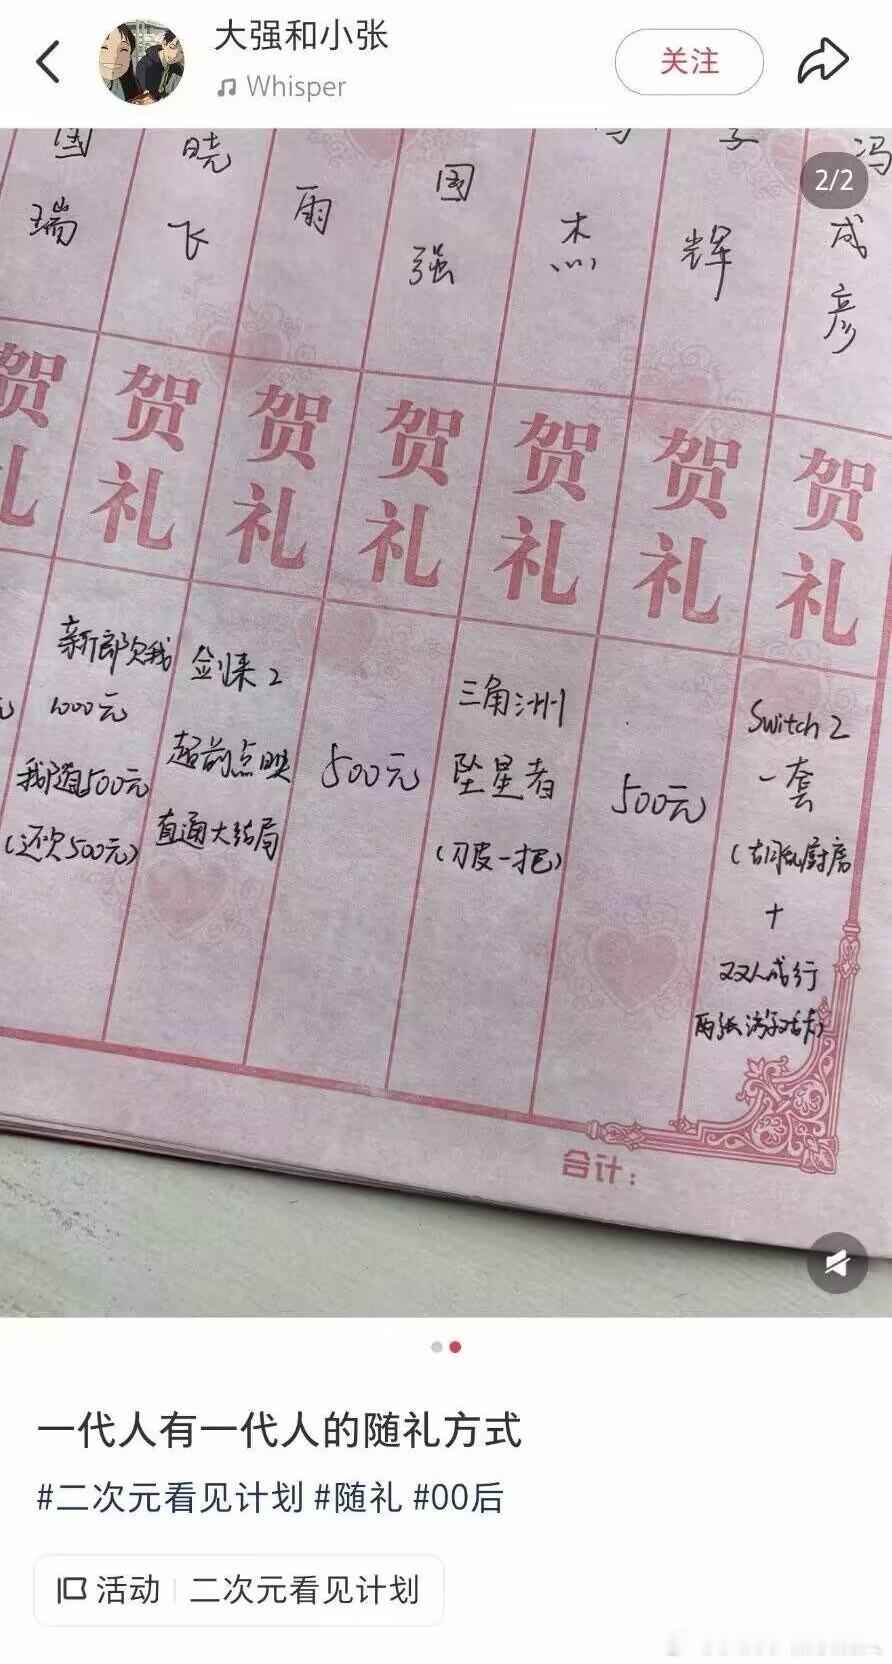 大强和小张
Whisper
关注
2/2
国瑞
晓飞
雨
国强
杰
辉
冯成彦
贺礼
贺礼
贺礼
贺礼
贺礼
贺礼
贺礼
元
新郎欠我
1000元
我随500元
(还欠500元)
剑来2
超前点映
直通大结局
500元
三角洲
坠星者
(刀皮一把)
500元
Switch 2
一套
(胡闹厨房
+
双人成行
两张游戏卡)
合计:
一代人有一代人的随礼方式
#二次元看见计划 #随礼 #00后
活动 | 二次元看见计划